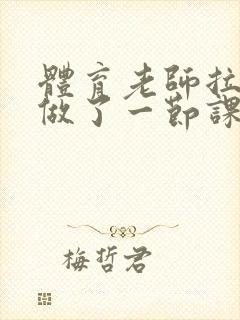 體育老師拉
做了一節課
梅哲君